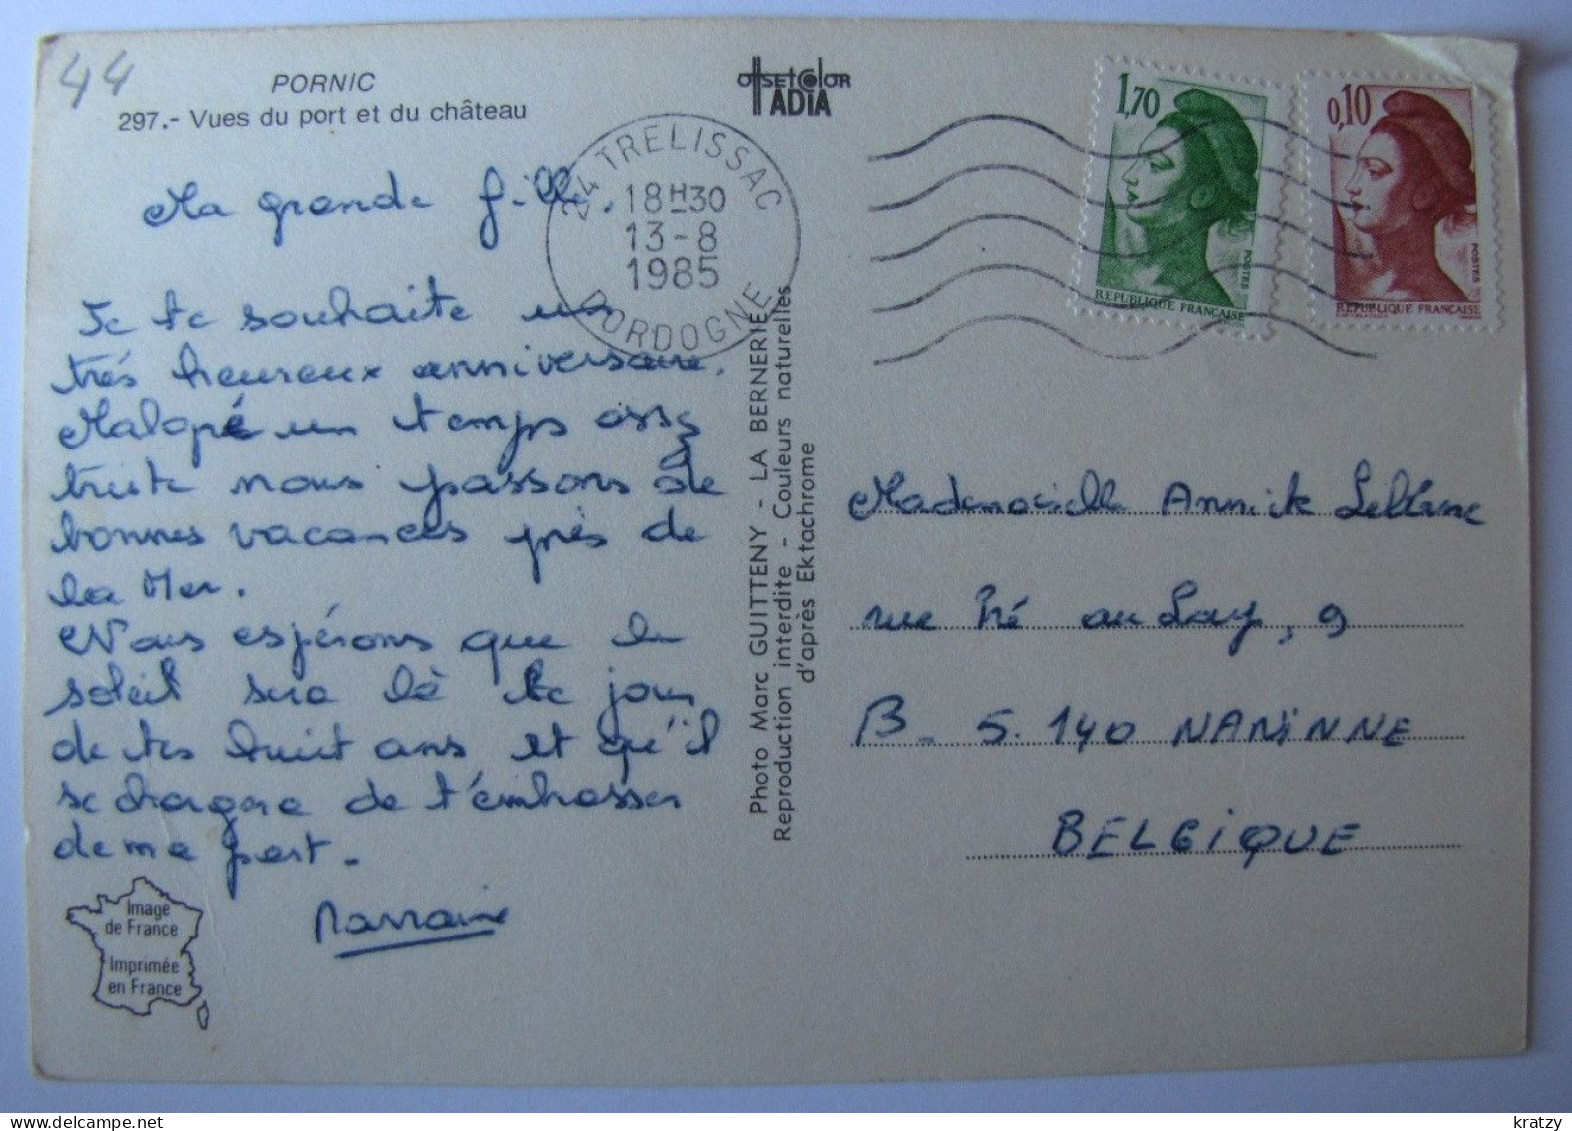 44
PORNIC
297.- Vues du port et du château
offsetcolor
IADIA
24 TRELISSAC
18H30
13-8
1985
DORDOGNE
1,70
POSTES
REPUBLIQUE FRANÇAISE
0,10
POSTES
REPUBLIQUE FRANÇAISE
Ma grande fille,
Je te souhaite un
très heureux anniversaire.
Malgré un temps assez
triste nous passons de
bonnes vacances près de
la Mer.
Nous espérons que le
soleil sera là le jour
de tes huit ans et qu'il
se chargera de t'embrasser
de ma part.
Marraine
Image
de France
Imprimée
en France
Photo Marc GUITTENY - LA BERNERIE
Reproduction interdite - Couleurs naturelles
d'après Ektachrome
Mademoiselle Annick Leblanc
rue Pré au Lay, 9
B- 5.140 NANINNE
BELGIQUE
kratzy